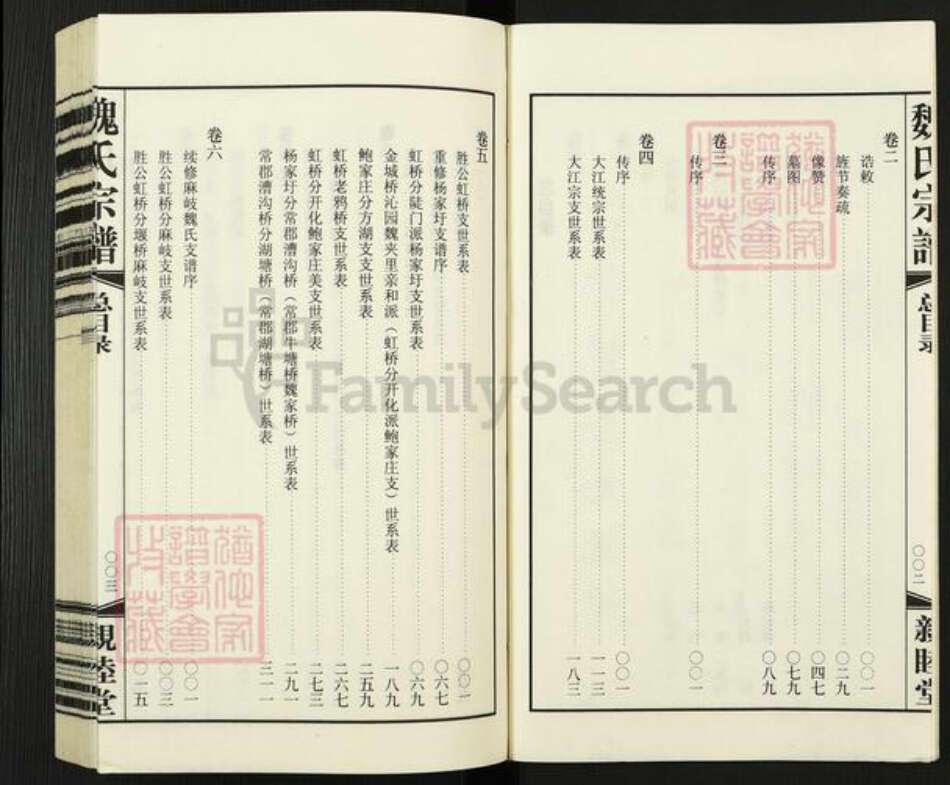 魏氏宗谱
总目录
〇〇二
亲睦堂
卷二
诰敕 〇〇一
旌节奏疏 〇二九
像赞 〇四七
墓图 〇七九
传序 〇八九
卷三
传序 〇〇一
卷四
传序 〇〇一
大江统宗世系表 一一三
大江宗支世系表 一八三
卷五
胜公虹桥支世系表 〇〇一
重修杨家圩支谱序 〇六七
虹桥分陡门派杨家圩支世系表 〇六九
金城桥沁园魏夹里亲和派（虹桥分开化派鲍家庄支）世系表 一八九
鲍家庄分方湖支支世系表 二五九
虹桥老鸦桥支世系表 二六七
虹桥分开化鲍家庄美支世系表 二七三
杨家圩分常郡漕沟桥（常郡牛塘桥魏家桥）世系表 二九一
常郡漕沟桥分湖塘桥（常郡湖塘桥）世系表 三一一
卷六
续修麻岐魏氏支谱序 〇〇一
胜公虹桥分麻岐支世系表 〇〇三
胜公虹桥分堰桥麻岐支世系表 〇一五
魏氏宗谱
总目录
〇〇三
亲睦堂
FamilySearch